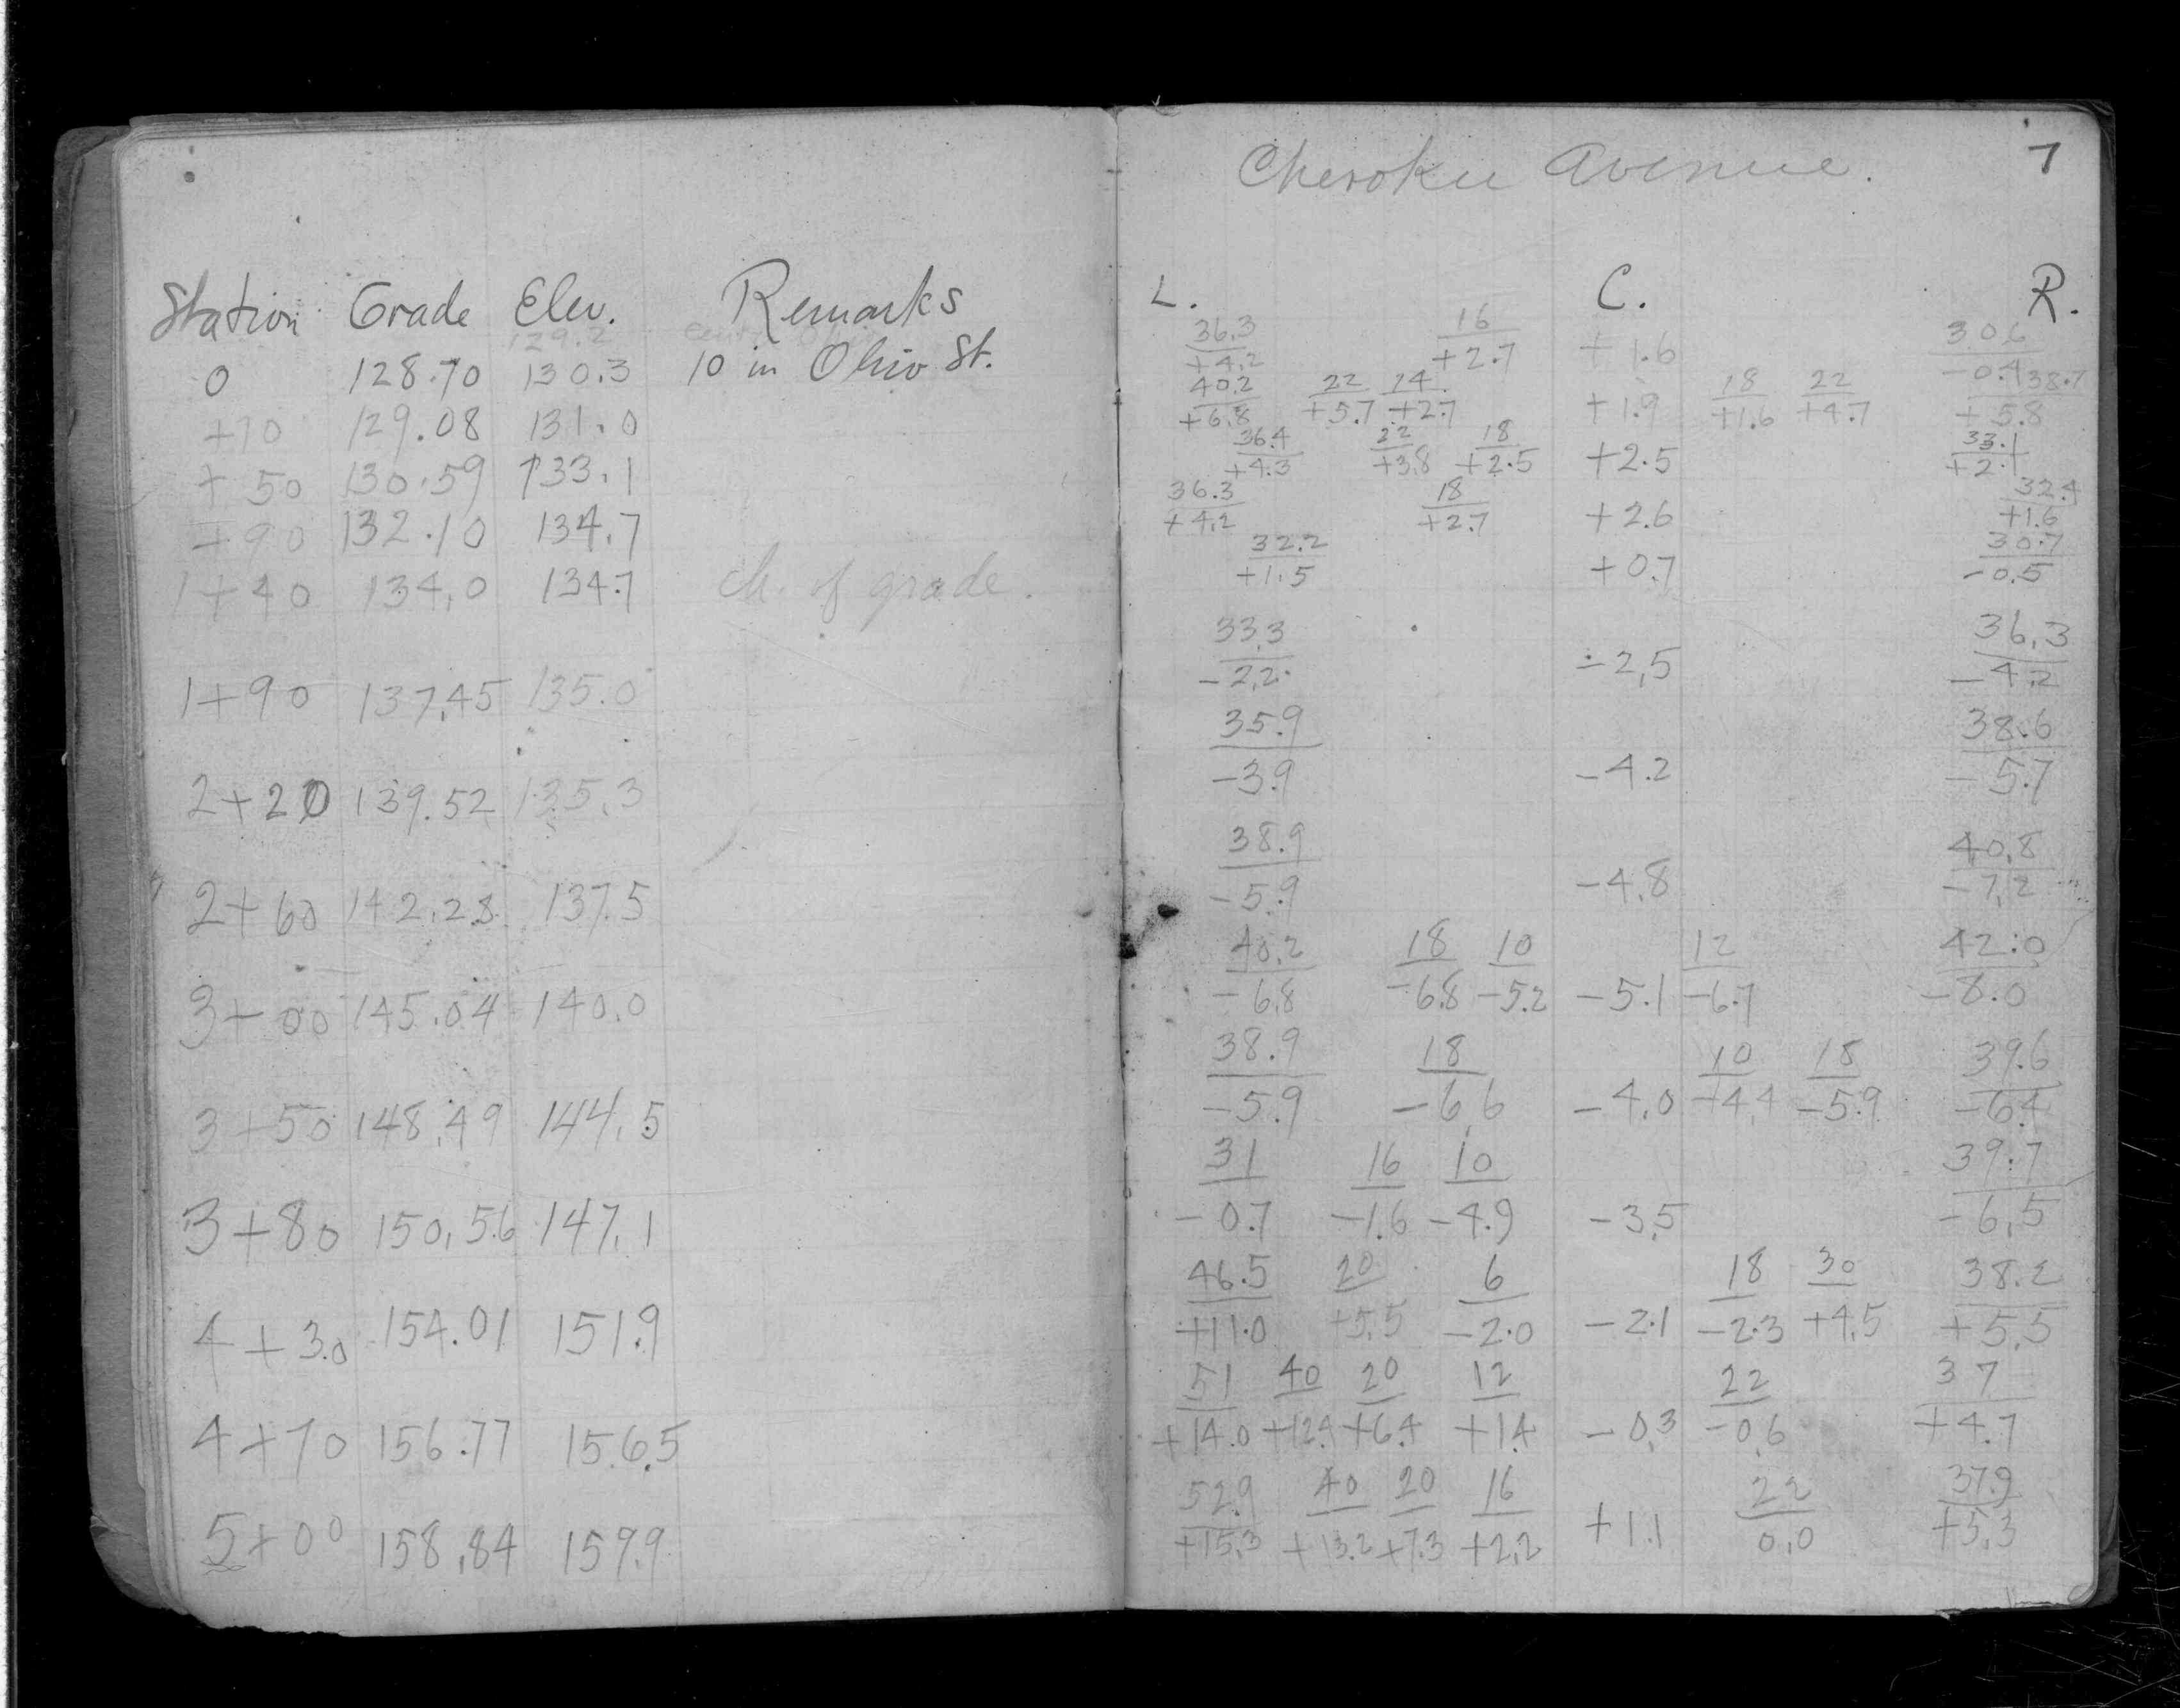 Cherokee Avenue. 7
Station Grade Elev. Remarks L. C. R.
129.2
0 128.70 130.3 10 in Ohio St. 36.3/+4.2 16/+2.7 +1.6 30.6/-0.4
+10 129.08 131.0 40.2/+6.8 22/+5.7 14/+2.7 +1.9 18/+1.6 22/+4.7 38.7/+5.8
+50 130.59 133.1 36.4/+4.3 22/+3.8 18/+2.5 +2.5 33.1/+2.1
+90 132.10 134.7 36.3/+4.2 18/+2.7 +2.6 32.4/+1.6
1+40 134.0 134.7 ch. of grade. 32.2/+1.5 +0.7 30.7/-0.5
1+90 137.45 135.0 33.3/-2.2 -2.5 36.3/-4.2
2+20 139.52 135.3 35.9/-3.9 -4.2 38.6/-5.7
2+60 142.28 137.5 38.9/-5.9 -4.8 40.8/-7.2
3+00 145.04 140.0 40.2/-6.8 18/-6.8 10/-5.2 -5.1 12/-6.7 42.0/-8.0
3+50 148.49 144.5 38.9/-5.9 18/-6.6 -4.0 10/-4.4 18/-5.9 39.6/-6.4
3+80 150.56 147.1 31/-0.7 16/-1.6 10/-4.9 -3.5 39.7/-6.5
4+30 154.01 151.9 46.5/+11.0 20/+5.5 6/-2.0 -2.1 18/-2.3 30/+4.5 38.2/+5.5
4+70 156.77 156.5 51/+14.0 40/+12.4 20/+6.4 12/+1.4 -0.3 22/-0.6 37/+4.7
5+00 158.84 159.9 52.9/+15.3 40/+13.2 20/+7.3 16/+2.2 +1.1 22/0.0 37.9/+5.3